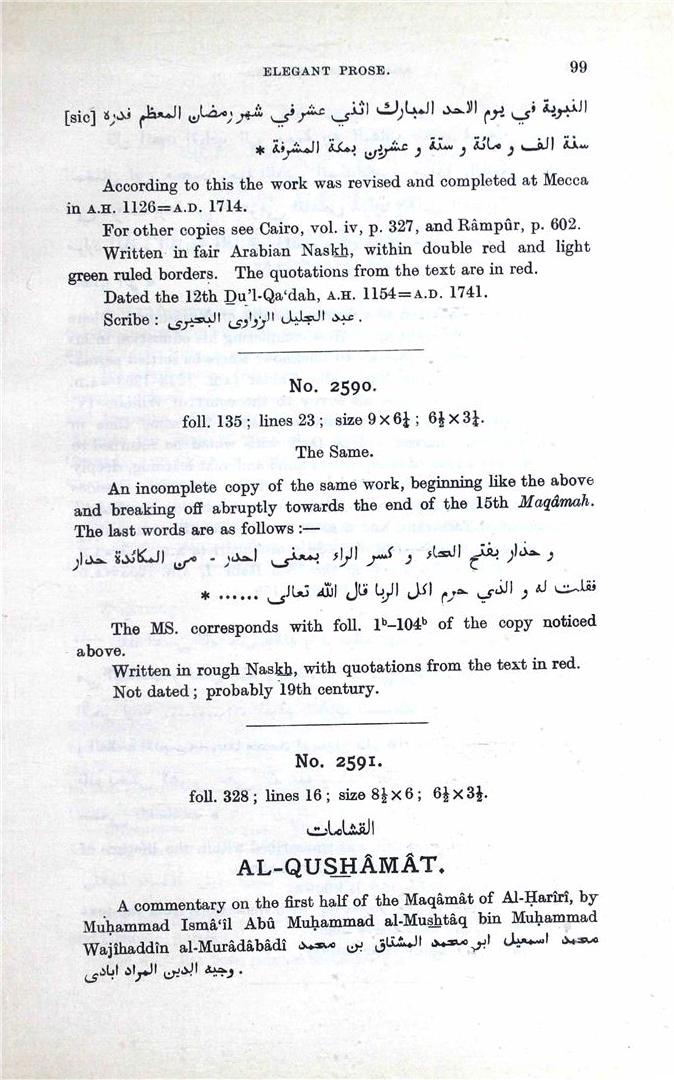 ELEGANT PROSE. 99
النبوية في يوم الاحد المبارك اثني عشر في شهر رمضان المعظم قدره [sic]
سنة الف و مائة و ستة و عشرين بمكة المشرفة *
According to this the work was revised and completed at Mecca
in A.H. 1126=A.D. 1714.
For other copies see Cairo, vol. iv, p. 327, and Râmpûr, p. 602.
Written in fair Arabian Naskh, within double red and light
green ruled borders. The quotations from the text are in red.
Dated the 12th Du'l-Qa‘dah, A.H. 1154=A.D. 1741.
Scribe : عبد الجليل الزواوي البحيرى .
No. 2590.
foll. 135 ; lines 23 ; size 9 × 6¼ ; 6½ × 3¼.
The Same.
An incomplete copy of the same work, beginning like the above
and breaking off abruptly towards the end of the 15th Maqâmah.
The last words are as follows :—
و حذار بفتح الحاء و كسر الراء بمعنى احذر - من المكائدة حذار
فقلت له و الذي حرم اكل الربا قال الله تعالى ...... *
The MS. corresponds with foll. 1ᵇ–104ᵇ of the copy noticed
above.
Written in rough Naskh, with quotations from the text in red.
Not dated ; probably 19th century.
No. 2591.
foll. 328 ; lines 16 ; size 8½ × 6 ; 6½ × 3½.
القشامات
AL-QUSHÂMÂT.
A commentary on the first half of the Maqâmât of Al-Ḥarîrî, by
Muḥammad Ismâ‘îl Abû Muḥammad al-Mushtâq bin Muḥammad
Wajîhaddîn al-Murâdâbâdî محمد اسمعيل ابو محمد المشتاق بن محمد
وجيه الدين المراد ابادى .